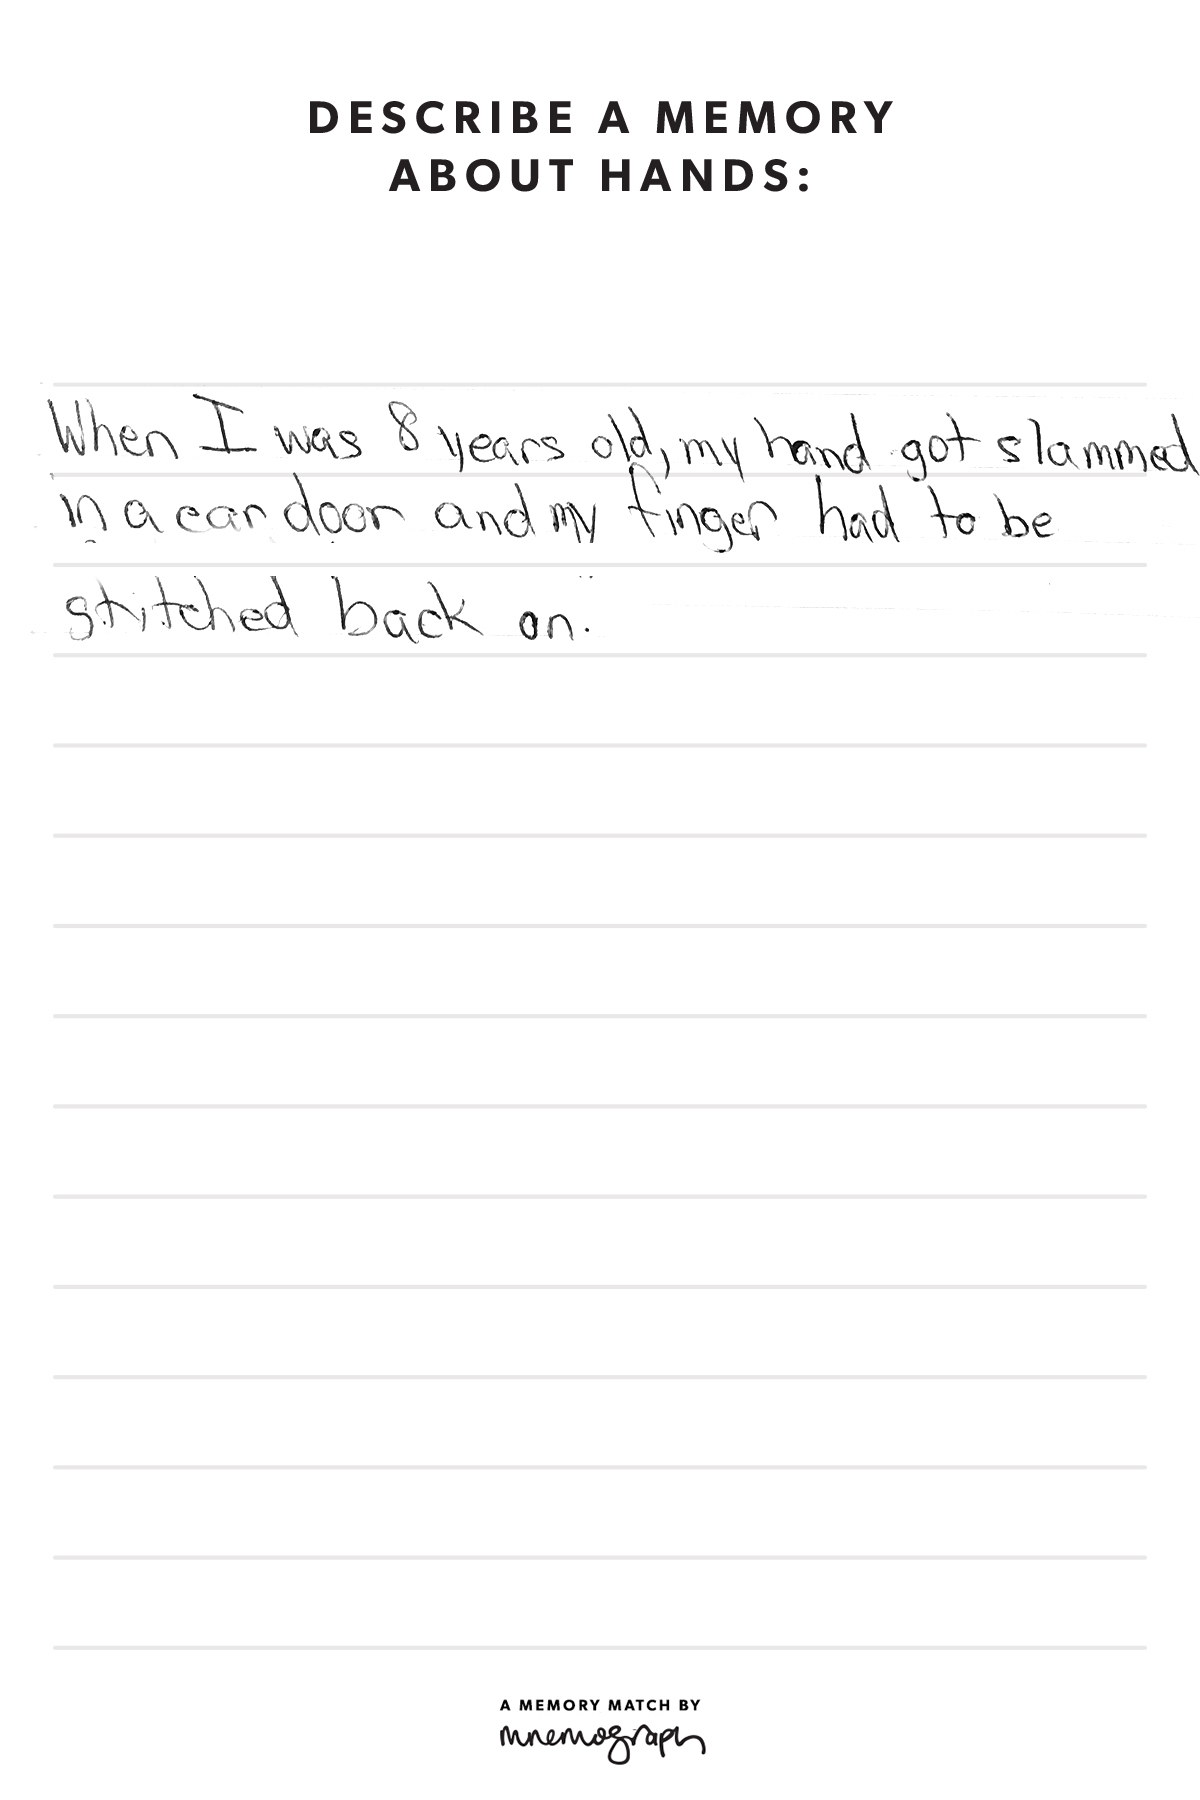 DESCRIBE A MEMORY
ABOUT HANDS:
When I was 8 years old, my hand got slammed
in a car door and my finger had to be
stitched back on.
A MEMORY MATCH BY
mnemograph